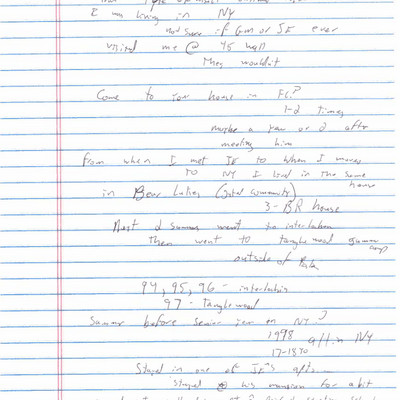 I was living in NY
not sure if GM or JE ever
visited me @ 45 hall
They wouldn't
Come to your house in FL?
1-2 times
maybe a year or 2 after
meeting him
From when I met JE to when I moved
TO NY I lived in the same
house
in Bear Lakes (gated community)
3-BR house
Next 2 summers went to interlochen
Then went to tanglewood summer
camp
outside of
94, 95, 96 - interlochen
97 - Tanglewood
Summer before senior year on NY?
1998 all in NY
17-18
Stayed in one of JE's apts
Stayed @ his mansion for a bit